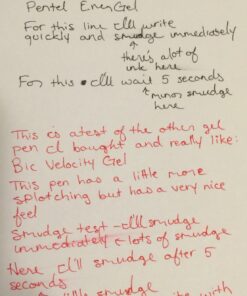 Pentel EnerGel
For this line I'll write
quickly and smudge immediately
there's alot of
ink here
For this • I'll wait 5 seconds
minor smudge
here
This is atest of the other gel
pen I bought and really like:
Bic Velocity Gel
This pen has a little more
splotching but has a very nice
feel
Smudge test - I'll smudge
immediately ← lots of smudge
Here, I'll smudge after 5
seconds
little smudge
with